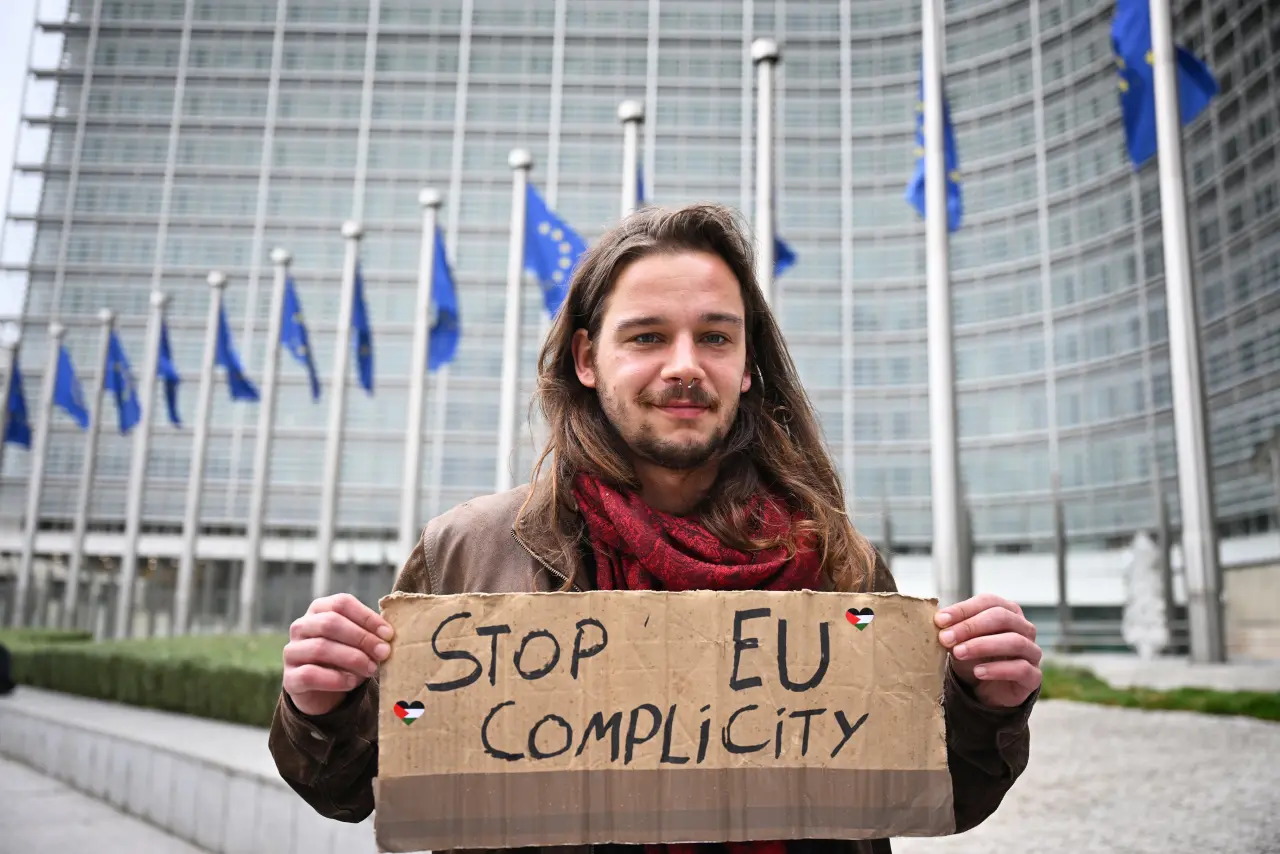 STOP EU
COMPLiCiTY